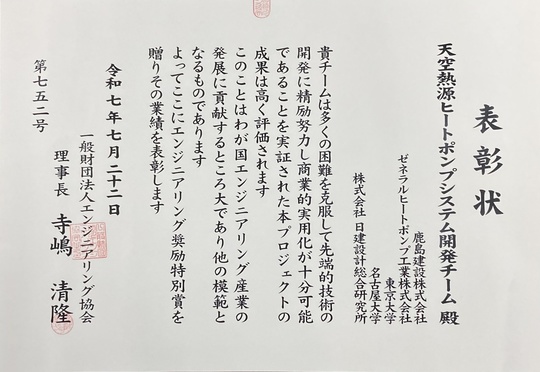 表彰状
天空熱源ヒートポンプシステム開発チーム 殿
鹿島建設株式会社
ゼネラルヒートポンプ工業株式会社
東京大学
名古屋大学
株式会社 日建設計総合研究所
貴チームは多くの困難を克服して先端的技術の
開発に精励努力し商業的実用化が十分可能
であることを実証された本プロジェクトの
成果は高く評価されます
このことはわが国エンジニアリング産業の
発展に貢献するところ大であり他の模範と
なるものであります
よってここにエンジニアリング奨励特別賞を
贈りその業績を表彰します
令和七年七月二十二日
一般財団法人エンジニアリング協会
理事長 寺嶋 清隆
第七五二号